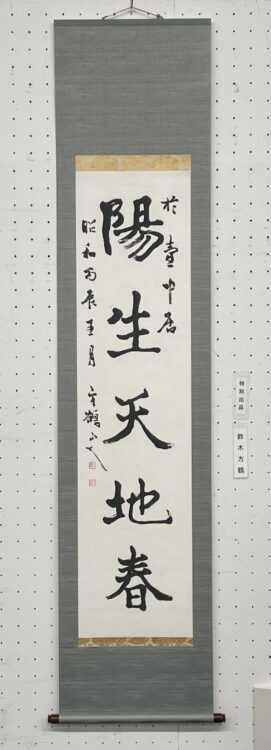 陽生天地春
於壷中居
昭和丙辰壬月
方鶴山人
特別出品
鈴木方鶴